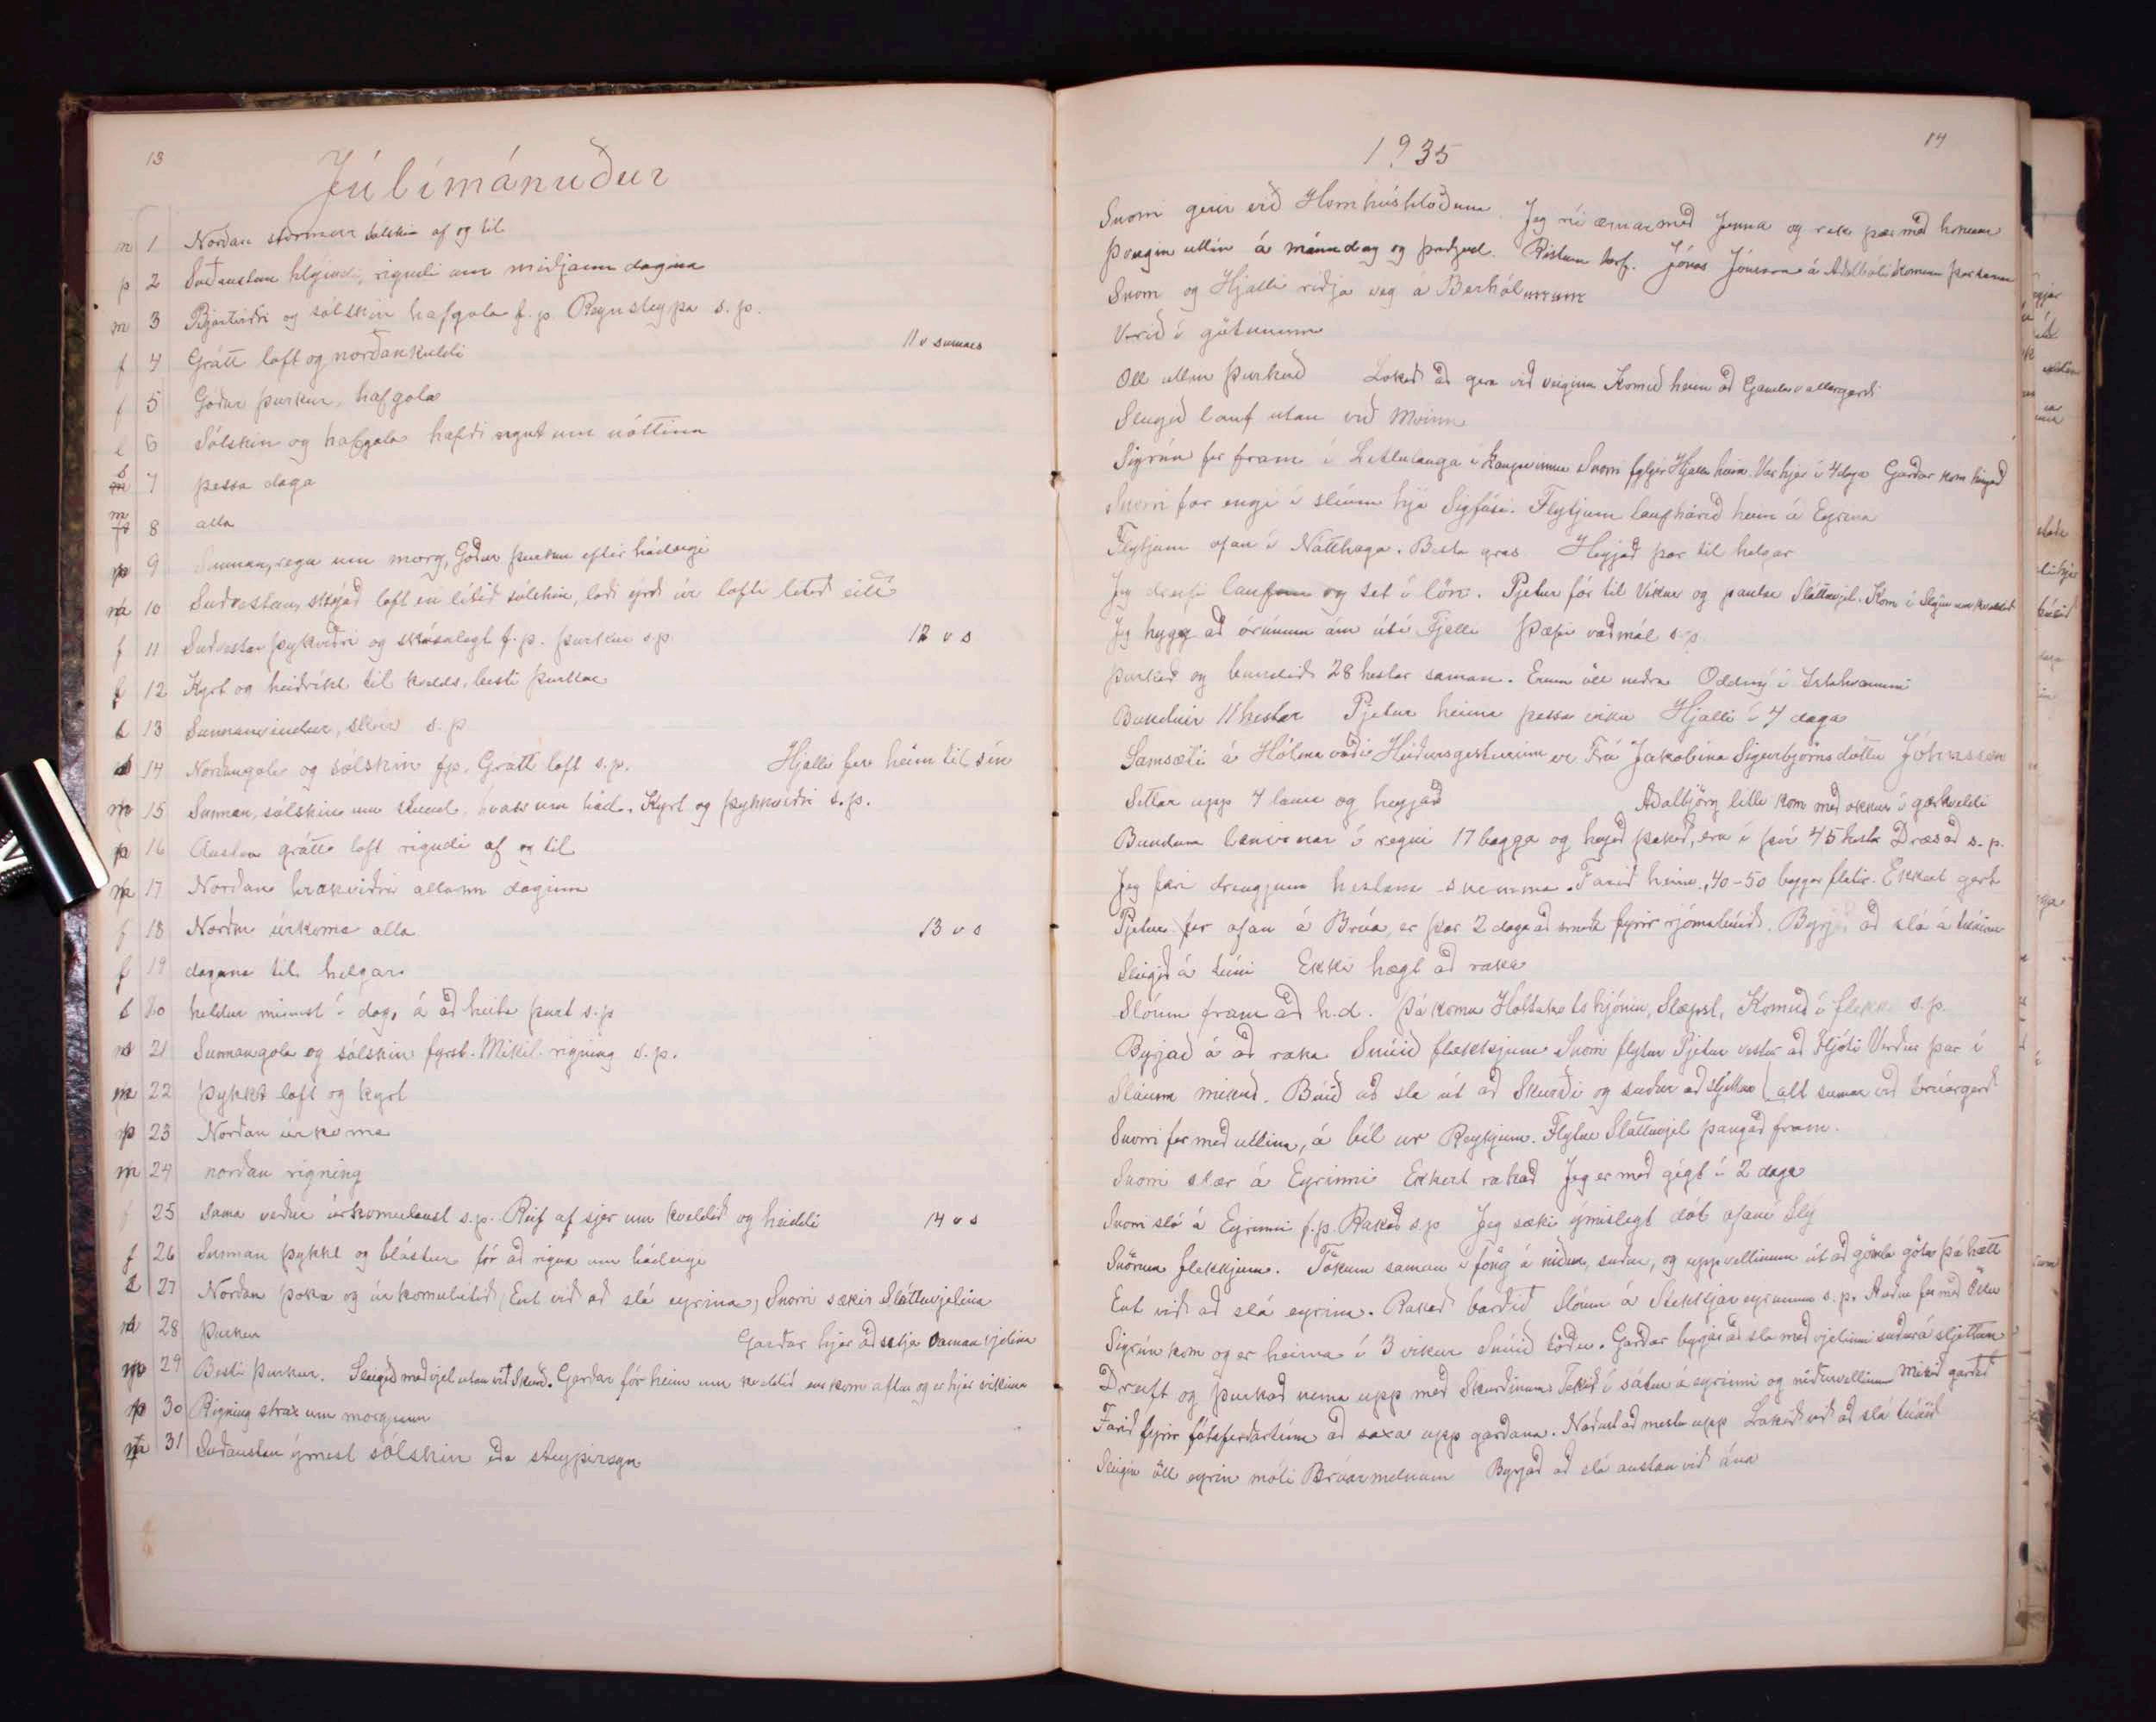 13
Júlímánuður
m 1 Norðan stormur sólskin af og til
þ 2 Suðaustan hlýindi, rigndi um miðjann daginn
m 3 og sólskin hafgola f.p. Regnsteypa s.p.
f 4 Grátt loft og norðankuldi 11 v sumars
f 5 Góður þurkur, hafgola
l 6 Sólskin og hafgola hafði rignt um nóttina
s 7 þessa daga
m 8 alla
þ 9 Sunnan, regn um morg, Góður þurkur eftir hádegi
m 10 Suðvestan, skýjað loft en lítið sólskin, loft lítið eitt
f 11 Suðvestan þykviðri og skúralegt f.p. þurkur s.p. 12 v s
f 12 Kyrt og heiðríkt til kvelds, besti þurkur
l 13 Sunnanvindur, skúr s.p
s 14 Norðangola og sólskin f.p. Grátt loft s.p. Hjalli fer heim til sín
m 15 Sunnan, sólskin um stund, hvass um hád. Kyrt og þykkviðri s.p.
þ 16 Austan grátt loft rigndi af og til
m 17 Norðan krakviðri allann daginn
f 18 Norðan úrkoma alla 13 v s
f 19 dagana til helgar
l 20 heldur minnst í dag, á að heita þurt s.p
s 21 Sunnangola og sólskin fyrst. Mikil rigning s.p.
m 22 Þykkt loft og kyrt
þ 23 Norðan úrkoma
m 24 norðan rigning
f 25 Sama veður úrkomulaust s.p. Reif af sjer um kveldið og 14 v s
f 26 Sunnan þykkt og blástur fór að rigna um hádegi
l 27 Norðan þoka og úrkomulítið, Ent við að slá eyrina, Snorri sækir Sláttuvjelina
s 28 Þurkur Garðar hjer að setja saman vjelina
m 29 Besti þurkur. Slegið með vjel utan við Skurð. Garðar fór heim um kveldið en kom aftur og er hjer vikuna
þ 30 Rigning strax um morgunn
m 31 Suðaustan ýmist sólskin eða steypiregn
1935
14
Snorri gerir við Hornhúshlöðuna. Jeg rí ærnar með Jenna og rek þær með honum
Þvegin ullin á mánudag og þriðjud. Ristum torf. Jónas Jónsson á Aðalbóli
Snorri og Hjalli riðja veg á Berhólunum
Verið í götunum
Öll ullin þurkuð Lokið að gera við veginn Komið heim að Gamlavallargarði
Slegið lauf utan við Móinn
Sigrún fer fram í Litlulauga í kaupavinnu Snorri fylgir Hjalla heim. Var hjer í 4 daga Garðar kom hingað
Snorri fær engi í slíum hjá Sigfúsi. Flytjum laufháið heim á Eyrina
Flytjum ofan í Nátthaga. Besta gras Heyjað þar til helgar
Jeg dreifi laufinu og set í lön. Pjetur fór til Víkur og pantar Sláttuvjel. Kom í
Jeg hygg að órúnum ám úti í Fjalli Þæfi vaðmál s.p
Þurkað og bundið 28 hestar saman. Erum öll neðra Oddný í Ystahvammi
Bundnir 11 hestar Pjetur heima þessa viku Hjalli í 4 daga
Samsæti á Hólmavaði Heiðursgesturinn er Frú Jakobína Sigurbjörnsdóttir Johnsson
Settar upp 4 lanir og heyjað Aðalbjörg litla kom með okkur í gærkveldi
Bundum lanirnar í regni 17 bagga og heyið þakið, eru í því 45 hestar s.p.
Jeg færi drengjum hestana snemma. Farið heim, 40-50 baggar flatir. Ekkert gert
Pjetur fer ofan á Brúa, er þar 2 daga að smíða fyrir rjómabúið. Byrjað að slá á túninu
Slegið á túni Ekki hægt að raka
Slóum fram að h.d. Þá komu Holtakots hjónin, Slæpst, Komið í flekk s.p.
Byrjað á að raka Snúið flekkjum Snorri flytur Pjetur vestur að Fljóti Verður þar í
Sláum mikið. Búið að slá út að Skurði og suður að sljettu (alt sumar við brúargerð
Snorri fer með ullina, á bíl úr Reykjum. Flytur Sláttuvjel þangað fram.
Snorri slær á Eyrinni Ekkert rakað Jeg er með gigt í 2 daga
Snorri sló á Eyrinni f.p. Rakað s.p Jeg sæki ýmislegt dót ofaní Slý
Snörum flekkjum. Tökum saman í föng á niður, suður, og uppvellinum út að gömlu götu þá hætt
Ent við að slá eyrina. Rakað barðið Slóum á Stekkjareyrunum s.p.
Sigrún kom og er heima í 3 vikur Snúið töðu. Garðar byrjar að slá með vjelinni suður á sljettum
Dreift og þurkað nema upp með Skurðinum. Tekið í sátur á eyrinni og niðurvellinum Mikið garðað
Farið fyrir fótaferðartíma að saxa upp garðana. Náðust að mestu upp Lokið við að slá túnið
Slegin öll eyrin móti Brúarmelnum Byrjað að slá austan við ána